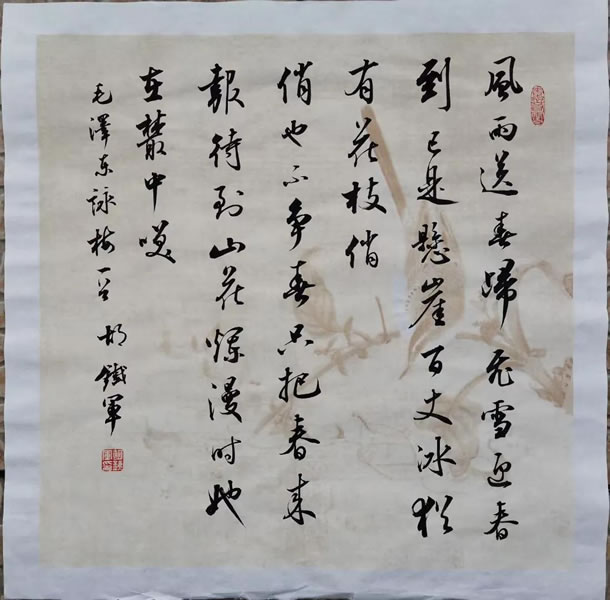 風雨送春歸飛雪迎春
到已是懸崖百丈冰猶
有花枝俏
俏也不争春只把春来
報待到山花爛漫时她
在叢中笑
毛澤东詠梅 胡鐵軍